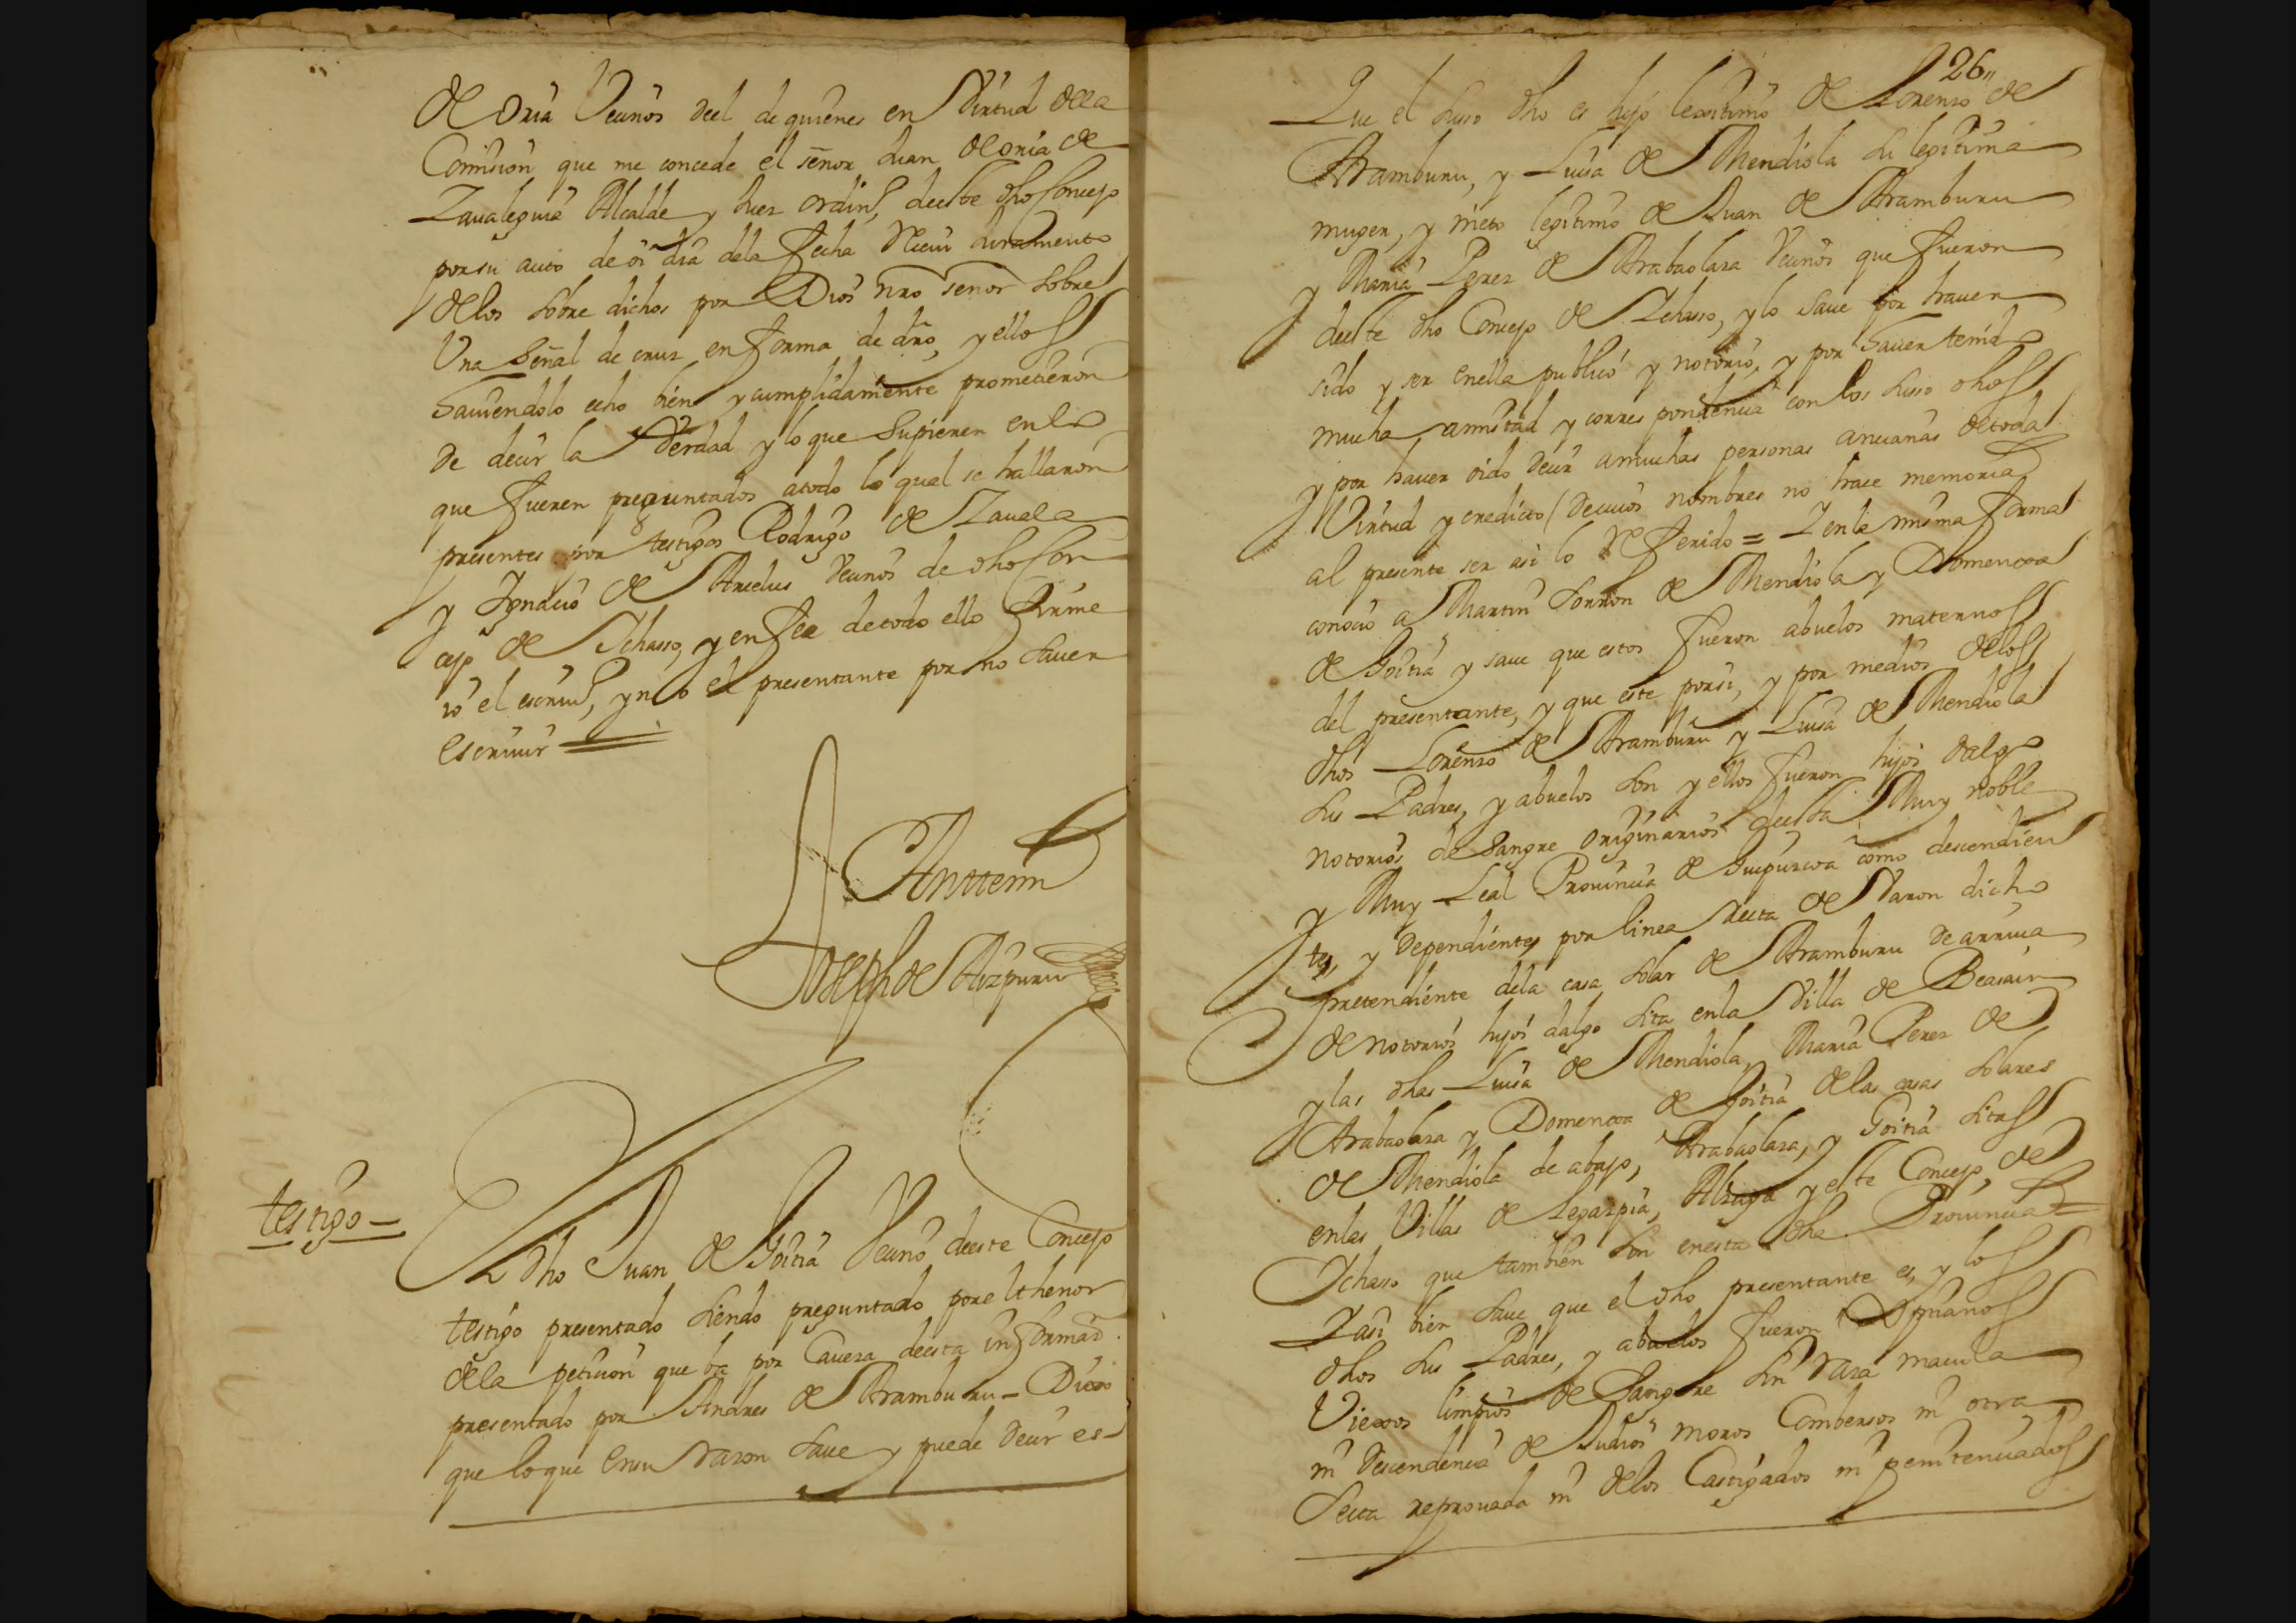 de oria Vecinos deel de quienes en Virtud dela
Comission que me concede el señor Juan de oria de
Zaualeguia Alcalde y Juez ordin.º deeste dho Concejo
por su auto de oi dia dela fecha Reciui Juramento
delos sobre dichos por Dios nro señor sobre
Una Señal de cruz en forma de dro, y ellos
hauiendolo echo bien y cumplidamente prometieron
de decir la Verdad y lo que Supieren en lo
que fueren preguntados atodo lo qual se hallaron
presentes por testigos Rodrigo de Zauala
y Ygnacio de Arcelus Vecinos de dho Con
cejo de Ychasso, y en fee de todo ello firme
io el escriu.º, y no el presentante por no sauer
escriuir
Antemi
Joseph de Aizpuru
testigo
El dho Juan de Goitia Vecino deeste Concejo
testigo presentado siendo preguntado por el thenor
dela peticion que ba por Cauera deesta informaz.
presentado por Andres de Aramburu – Dixo
que lo que en su razon saue y puede decir es
26
Que el susso dho es hijo lexitimo de Lorenso de
Aramburu, y Luisa de Mendiola su legitima
muger, y nieto legitimo de Juan de Aramburu
y Maria Perez de Arabaolaza Vecinos que fueron
deeste dho Concejo de Ychasso, y lo saue por hauer
sido y ser en ella publico y notorio, y por hauer tenido
mucha amistad y correspondencia con los susso dhos
y por hauer oido decir amuchas personas ancianas de toda
Virtud y credicto (de cuios nombres no hace memoria
al presente ser asi lo Referido = Y en la misma forma
conocio a Martin Sorron de Mendiola y Domenxa
de Goitia y saue que estos fueron abuelos maternos
del presentante, y que este por si, y por medios delos
dhos Lorenso de Aramburu y Luisa de Mendiola
sus Padres, y abuelos son y ellos fueron hijos dalgo
notorios de Sangre originarios deesta Muy noble
y Muy Leal Prouincia de Guipuzcoa como descendien
tes, y dependientes por linea recta de Varon dicho
pretendiente dela casa solar de Aramburu de arriua
de notorios hijos dalgo sita en la Villa de Beasain
y las dhas Luisa de Mendiola, Maria Perez de
Arabaolaza y Domenxa de Goitia delas casas solares
de Mendiola de abajo, Arabaolaza, y Goitia sitas
en las Villas de Legazpia, Alzaga y este Concejo, de
Ychasso que tambien son en esta dha Prouincia =
Y asi bien saue que el dho presentante es, y los
dhos sus Padres, y abuelos fueron Xpianos
Viexos limpios de Sangre sin raza macula
ni descendencia de Judios moros Combersos ni otra
Secta reprouada ni delos Castigados ni penitenciados